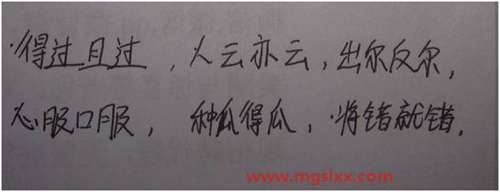 ·得过且过，人云亦云，出尔反尔，
心服口服，种瓜得瓜，·将错就错.
www.mgslxx.com